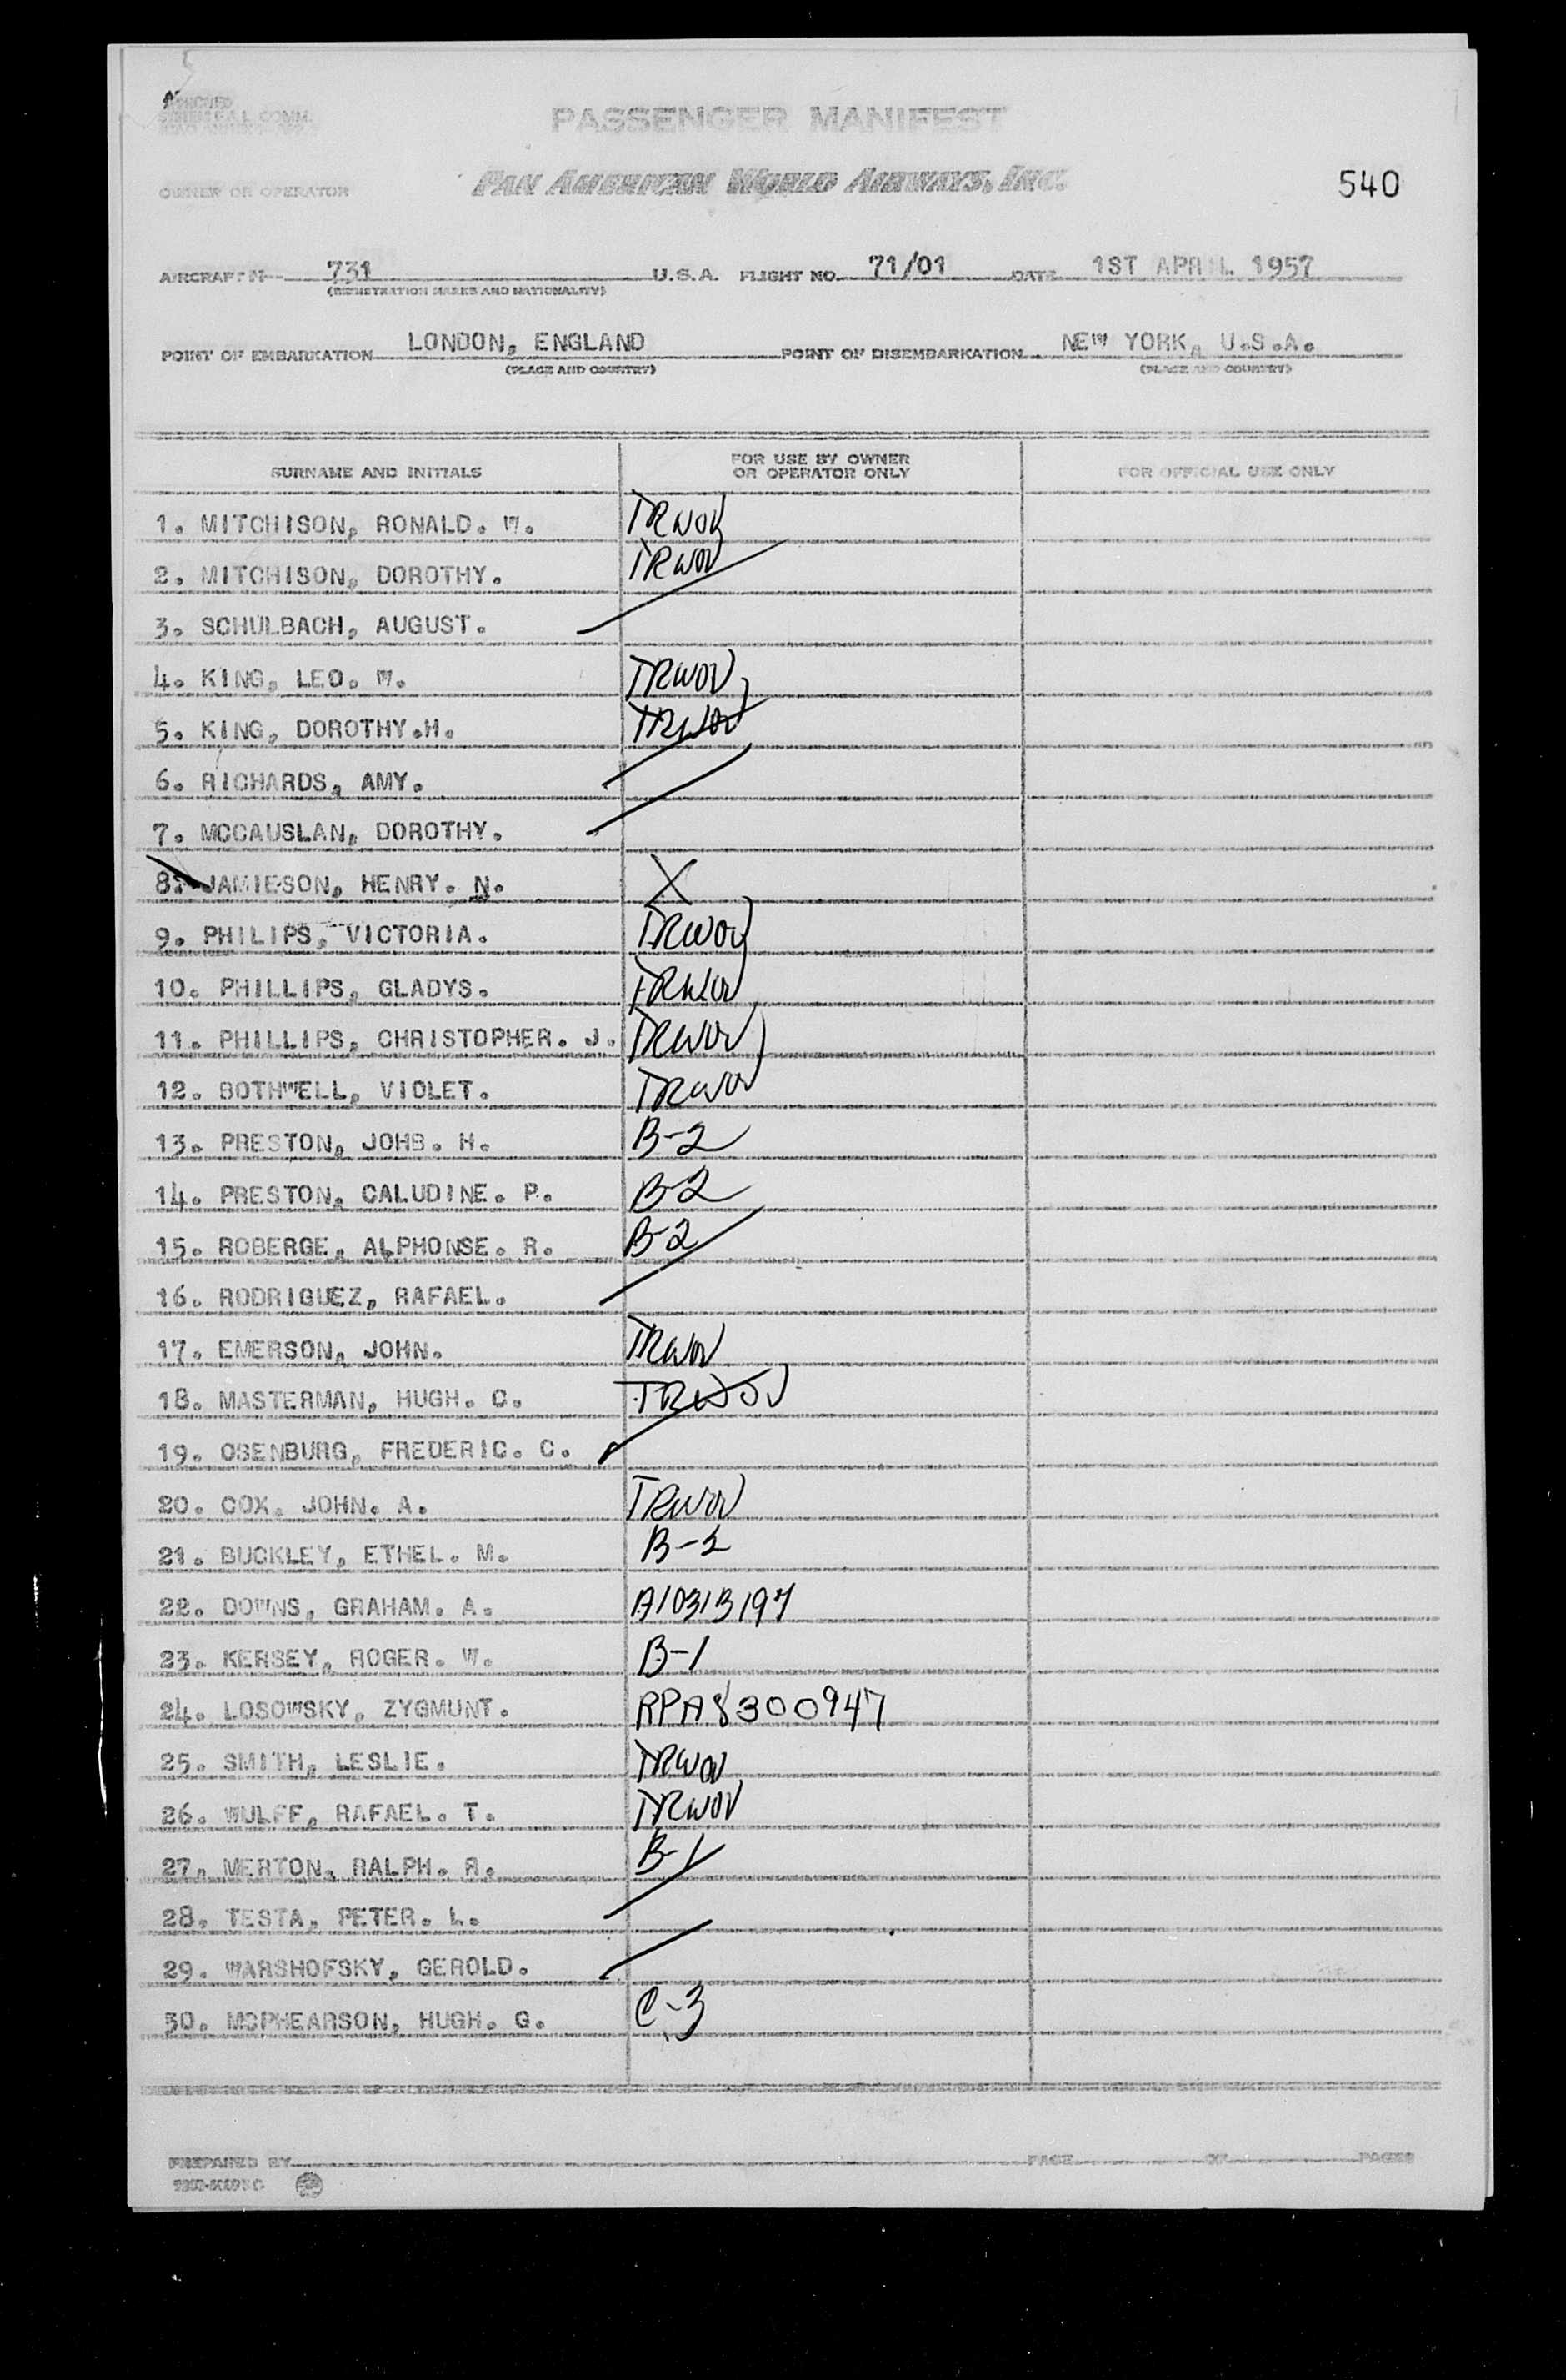 PASSENGER MANIFEST
OWNER OR OPERATOR PAN AMERICAN WORLD AIRWAYS, INC. 540
AIRCRAFT N 731 U.S.A. FLIGHT NO. 71/01 DATE 1ST APRIL 1957
(REGISTRATION MARKS AND NATIONALITY)
POINT OF EMBARKATION LONDON, ENGLAND POINT OF DISEMBARKATION NEW YORK, U.S.A.
(PLACE AND COUNTRY) (PLACE AND COUNTRY)
SURNAME AND INITIALS FOR USE BY OWNER OR OPERATOR ONLY FOR OFFICIAL USE ONLY
1. MITCHISON, RONALD. W. TRWOV
2. MITCHISON, DOROTHY. TRWOV
3. SCHULBACH, AUGUST.
4. KING, LEO. W. TRWOV
5. KING, DOROTHY.H. TRWOV
6. RICHARDS, AMY.
7. MCCAUSLAN, DOROTHY.
8. JAMIESON, HENRY. N. X
9. PHILIPS, VICTORIA. TRWOV
10. PHILLIPS, GLADYS. TRWOV
11. PHILLIPS, CHRISTOPHER. J. TRWOV
12. BOTHWELL, VIOLET. TRWOV
13. PRESTON, JOHB. H. B-2
14. PRESTON, CALUDINE. P. B-2
15. ROBERGE, ALPHONSE. R. B-2
16. RODRIGUEZ, RAFAEL.
17. EMERSON, JOHN. TRWOV
18. MASTERMAN, HUGH. C. TRWOV
19. OSENBURG, FREDERIC. C.
20. COX, JOHN. A. TRWOV
21. BUCKLEY, ETHEL. M. B-2
22. DOWNS, GRAHAM. A. A10313197
23. KERSEY, ROGER. W. B-1
24. LOSOWSKY, ZYGMUNT. RPA8300947
25. SMITH, LESLIE. TRWOV
26. WULFF, RAFAEL. T. TRWOV
27. MERTON, RALPH. R. B-1
28. TESTA, PETER. L.
29. WARSHOFSKY, GEROLD.
30. MCPHEARSON, HUGH. G. C-3
PREPARED BY PAGE OF PAGES